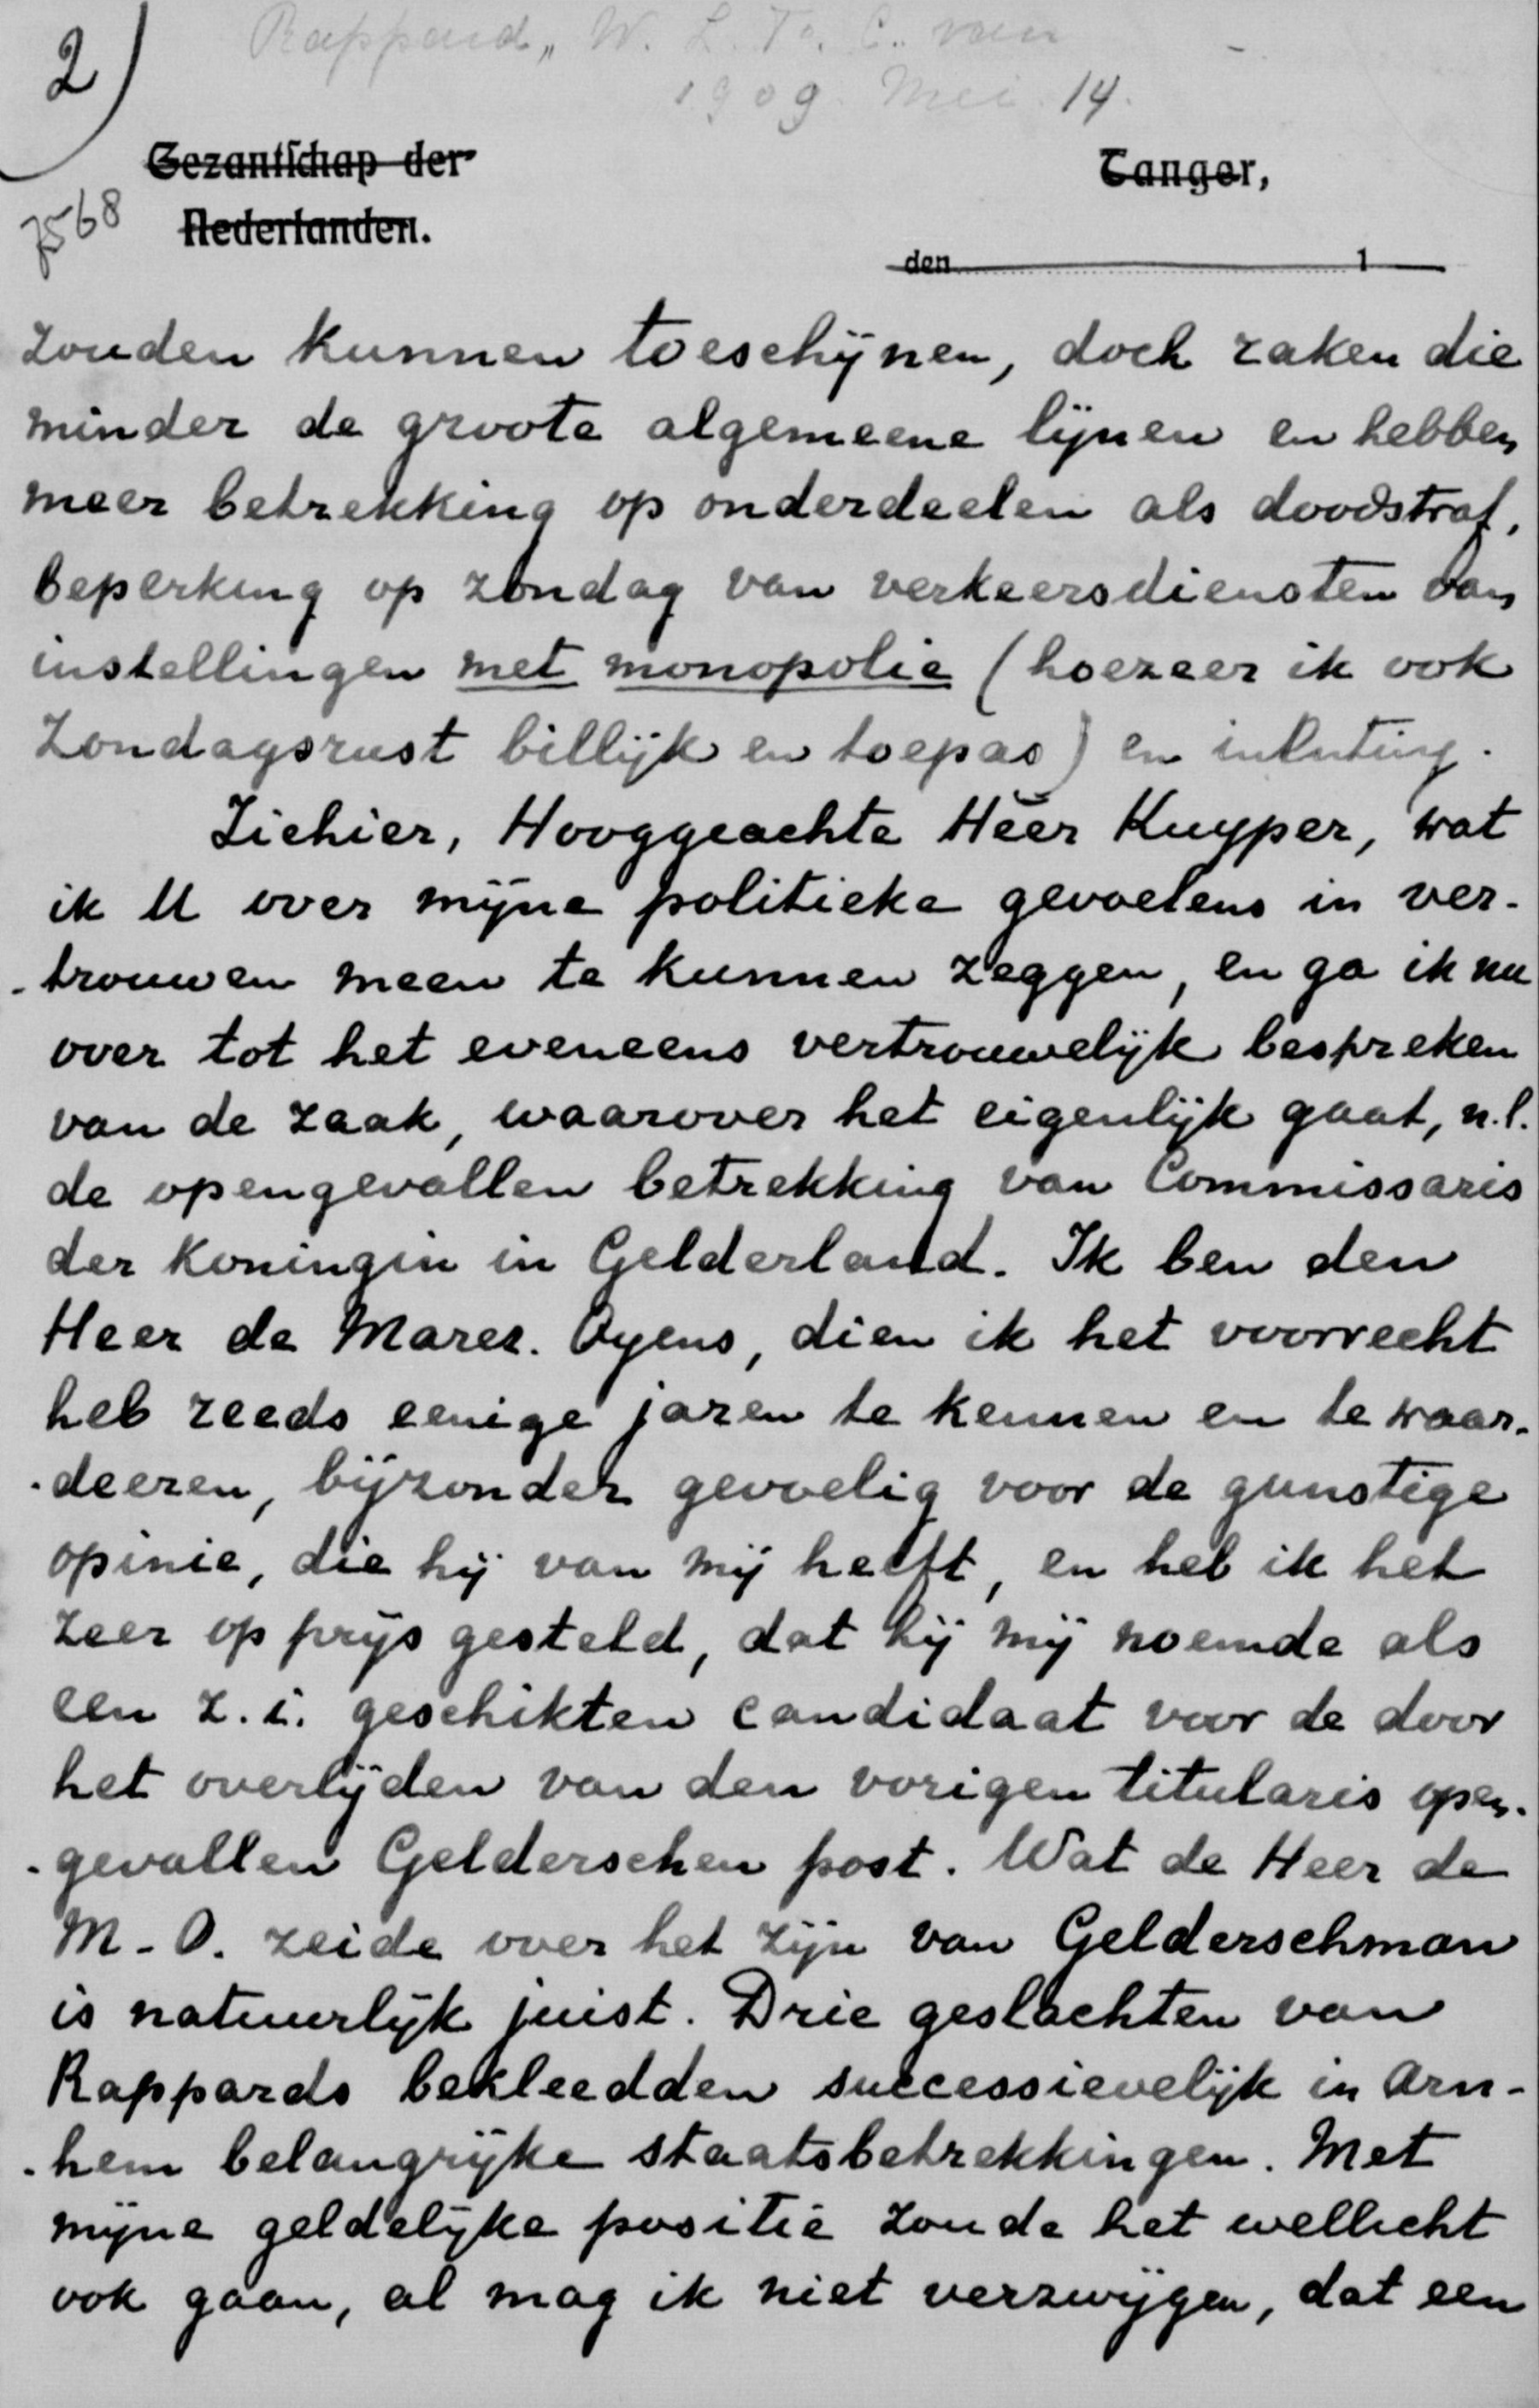 2)
Rappard, W. L. F. C. van
1909 Mei 14.
7568
Gezantschap der
Nederlanden.
Tanger,
den 1
zouden kunnen toeschijnen, doch zaken die
minder de groote algemeene lijnen en hebben
meer betrekking op onderdeelen als doodstraf,
beperking op zondag van verkeersdiensten van
instellingen met monopolie (hoezeer ik ook
Zondagsrust billijk en toepas) en inenting.
Ziehier, Hooggeachte Heer Kuyper, wat
ik U over mijne politieke gevoelens in ver-
-trouwen meen te kunnen zeggen, en ga ik nu
over tot het eveneens vertrouwelijk bespreken
van de zaak, waarover het eigenlijk gaat, n.l.
de opengevallen betrekking van Commissaris
der Koningin in Gelderland. Ik ben den
Heer de Marez. Oyens, dien ik het voorrecht
heb reeds eenige jaren te kennen en te waar-
-deeren, bijzonder gevoelig voor de gunstige
opinie, die hij van mij heeft, en heb ik het
zeer op prijs gesteld, dat hij mij noemde als
een z.i. geschikten candidaat voor de door
het overlijden van den vorigen titularis open-
-gevallen Gelderschen post. Wat de Heer de
M-O. zeide over het zijn van Gelderschman
is natuurlijk juist. Drie geslachten van
Rappards bekleedden successievelijk in Arn-
-hem belangrijke staatsbetrekkingen. Met
mijne geldelijke positie zoude het wellicht
ook gaan, al mag ik niet verzwijgen, dat een